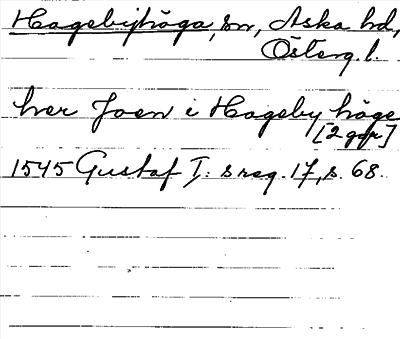 Hagebyhöga, sn, Aska hd,
Österg. l.
her Joen i Hageby höge
[2 ggr]
1545 Gustaf I: s reg. 17, s. 68.